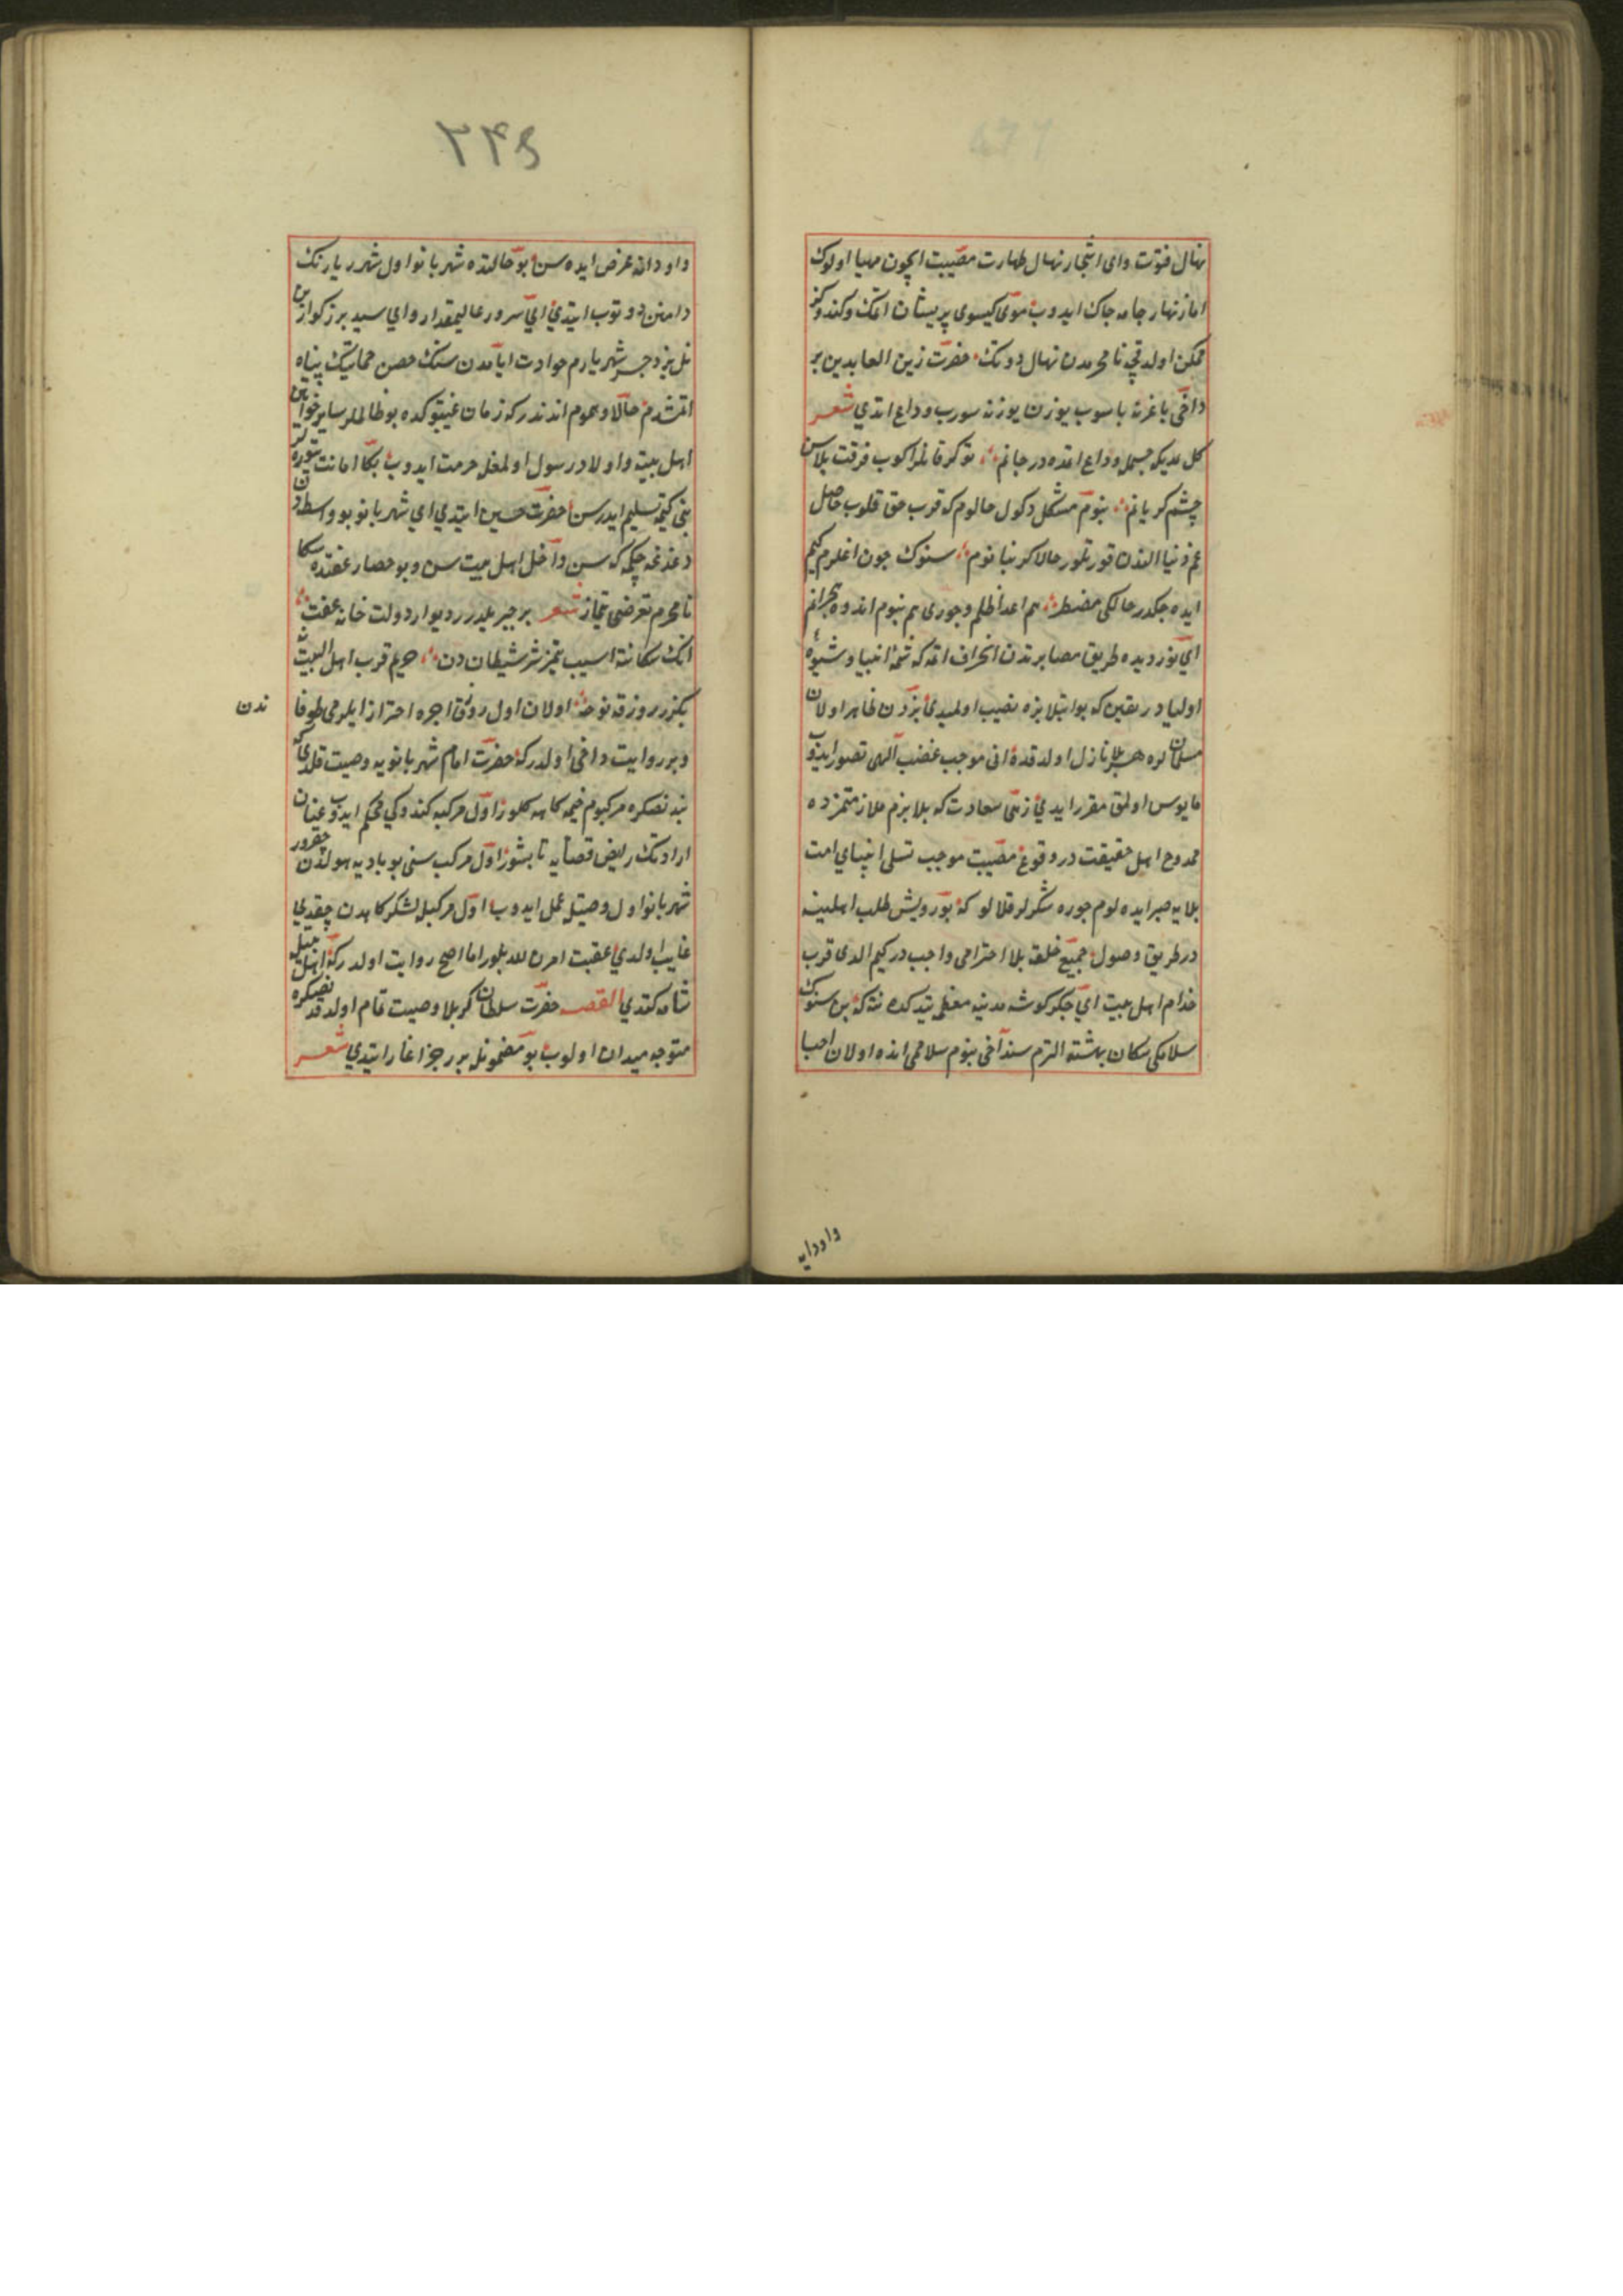 نهال فتوت وای اشجار نهال طهارت مصیبت ایچون مهیا اولوک
اما زنهار جامه چاک ایدوب موی کیسوی پریشان اتمک وکندوکز
ممکن اولدقچه نامحرمدن نهال دوتک حضرت زین العابدین بر
داخی باغرنه باسوب یوزن یوزنه سورب وداع اتدي شعر
کل بدیکه جسمله وداع اتده در جانم توکر قانلر اکوب فرقت بلاسن
چشم کریانم بنوم مشکل دکول حالوم که قرب حق قلوب حاصل
غم دنیا الندن قورتلور حالا کریبانوم سنوک چون اغلرم کیم
ایده جکدر حالکی مضطر هم اعدا ظلم وجوری هم بنوم اندوه هجرانم
اي نور دیده طریق مصابرتدن انحراف اتمه که شیمۀ انبیا وشیوۀ
اولیادر یقین که بو ابتلا بزه نصیب اولمیدی بزدن ظاهر اولان
مسلمانلره هر بلا نازل اولدقده انی موجب غضب الهی تصور ایدوب
مایوس اولمق مقرر ایدي زهی سعادت که بلا بزم ملازمتمزده
ممدوح اهل حقیقت در وقوع مصیبت موجب تسلی انبیای امت
بلایه صبر ایده لوم جوره شکرلر قلالو که بو رویش طلب اهلینه
در طریق وصول جمیع خلقه بلا احترامی واجب در کیم الدی قرب
خدام اهل بیت اي جکر کوشه مدینه معظمه یتدکده نته که بن سنوک
سلامکی سکان بهشته الترم سنداخی بنوم سلاممی انده اولان احبا
واودایه
۲۳۶
واودایه عرض ایده سن بو حالتده شهربانو اول شهریارنک
دامنن دوتوب ایتدي اي سرور عالیمقدار واي سید بزرکوار بن
نسل یزدجر شهریارم حوادث ایامدن سنک حصن حمایتک پناه
اتمشدم حالا وهموم اندندر که زمان غیبتوکده بو ظالملر سایر خواتین
اهل بیت واولاد رسول اولمغله حرمت ایدوب بکا اهانت یتوره لر
بنی کیمه تسلیم ایدرسن حضرت حسین ایتدي اي شهربانو بو واسطه دن
دغدغه چکمه که سن داخل اهل بیت سن وبو حصار عفتده سکا
نامحرم تعرضی یتماز شعر برجیر بلدرر دیوار دولت خانه عفت
انک سکاننه اسیب یتمز شر شیطان دن حریم قرب اهل البیت
بکزر روز قه نوحه اولان اول زورق اجره احتراز ایلرمی طوفا
ندن
وبر روایت داخی اولدر که حضرت امام شهربانویه وصیت قلدی که
بندنصکره مرکبوم خیمه کاهه کلور اول مرکبه کندوکی محکم ایدوب عنان
ارادتک رایض قضایه تابشور اول مرکب سنی بو بادیه هولدن چقرور
شهربانو اول وصیتله عمل ایدوب اول مرکبله لشکرکاهدن چقدي
غایب اولدي عقبت امرن الله بلور اما اصح روایت اولدر که اهل بیتله
شامه کتدي القصه حضرت سلطان کربلا وصیت تمام اولدقدنصکره
متوجه میدان اولوب بو مضمونله بر رجز اغاز ایتدي شعر